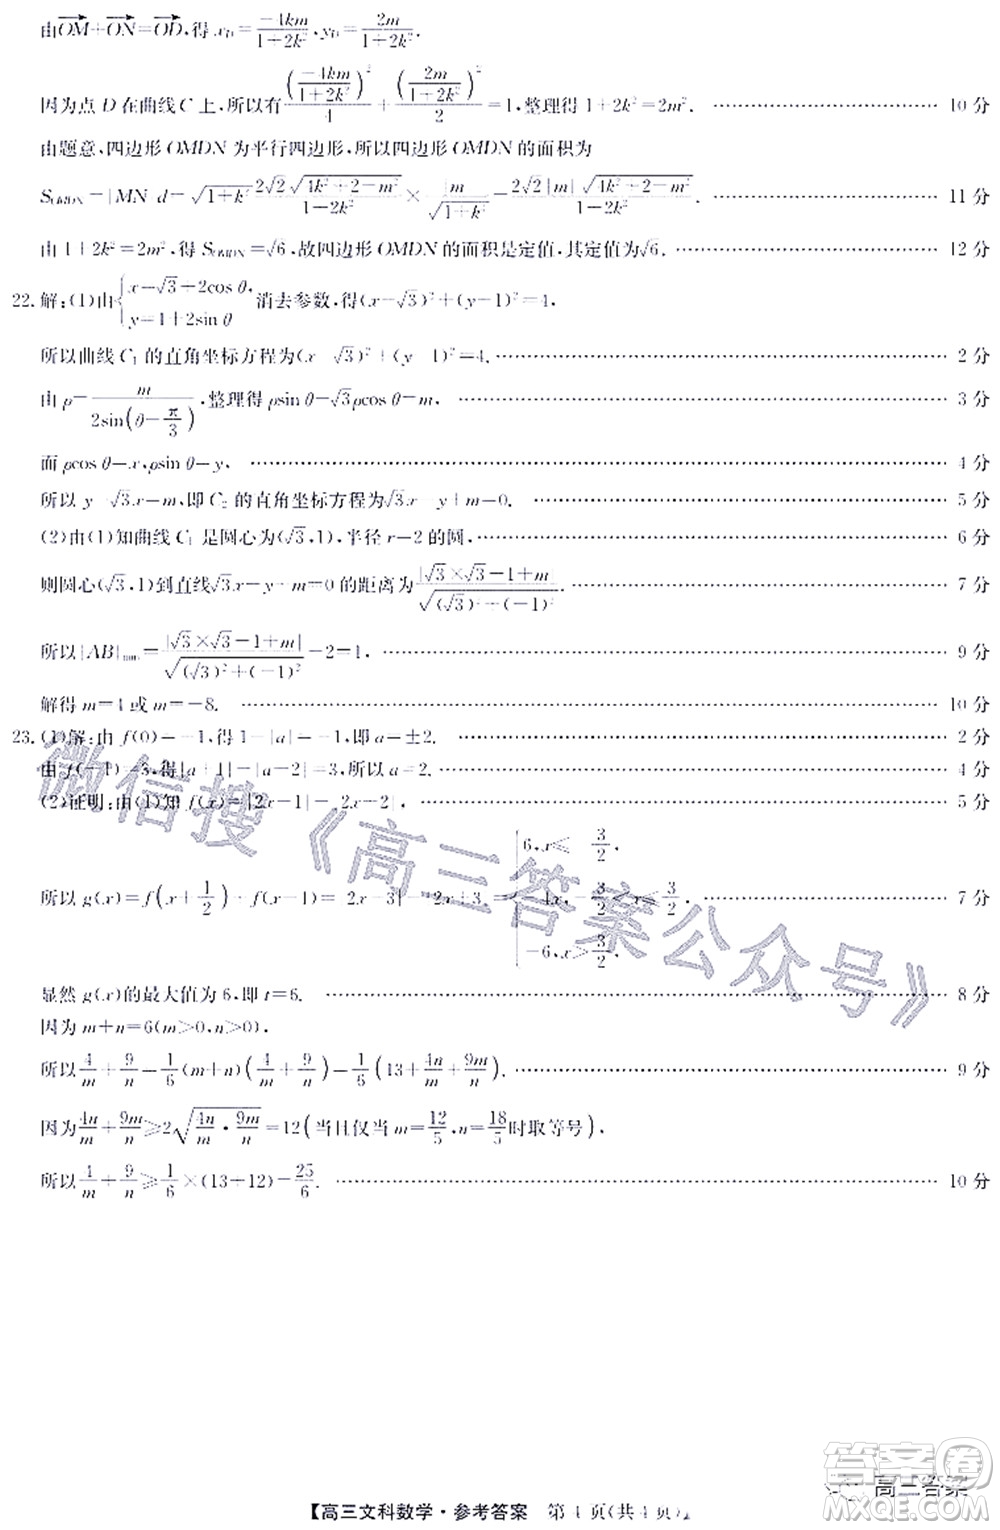 由\overrightarrow{OM}+\overrightarrow{ON}=\overrightarrow{OD},得 x_D=\frac{-4km}{1+2k^2},y_D=\frac{2m}{1+2k^2}.
因为点 D 在曲线 C 上,所以有\frac{(\frac{-4km}{1+2k^2})^2}{4}+\frac{(\frac{2m}{1+2k^2})^2}{2}=1,整理得 1+2k^2=2m^2. 10 分
由题意,四边形 OMDN 为平行四边形,所以四边形 OMDN 的面积为
S_{OMDN}=|MN|d=\sqrt{1+k^2}\frac{2\sqrt{2}\sqrt{4k^2+2-m^2}}{1+2k^2}×\frac{|m|}{\sqrt{1+k^2}}=\frac{2\sqrt{2}|m|\sqrt{4k^2+2-m^2}}{1+2k^2}. 11 分
由 1+2k^2=2m^2,得 S_{OMDN}=\sqrt{6},故四边形 OMDN 的面积是定值,其定值为\sqrt{6}. 12 分
22.解:(1)由{x=\sqrt{3}+2cos θ, y=1+2sin θ 消去参数,得(x-\sqrt{3})^2+(y-1)^2=4,
所以曲线 C_1 的直角坐标方程为(x-\sqrt{3})^2+(y-1)^2=4. 2 分
由 ρ=\frac{m}{2sin(θ-\frac{π}{3})},整理得 ρsin θ-\sqrt{3}ρcos θ=m, 3 分
而 ρcos θ=x,ρsin θ=y, 4 分
所以 y-\sqrt{3}x=m,即 C_2 的直角坐标方程为\sqrt{3}x-y+m=0. 5 分
(2)由(1)知曲线 C_1 是圆心为(\sqrt{3},1),半径 r=2 的圆, 6 分
则圆心(\sqrt{3},1)到直线\sqrt{3}x-y+m=0 的距离为\frac{|\sqrt{3}×\sqrt{3}-1+m|}{\sqrt{(\sqrt{3})^2+(-1)^2}}. 7 分
所以|AB|_{min}=\frac{|\sqrt{3}×\sqrt{3}-1+m|}{\sqrt{(\sqrt{3})^2+(-1)^2}}-2=1, 9 分
解得 m=4 或 m=-8. 10 分
23.(1)解:由 f(0)=-1,得 1-|a|=-1,即 a=±2. 2 分
由 f(-1)=3,得|a+1|-|a-2|=3,所以 a=2. 4 分
(2)证明:由(1)知 f(x)=|2x-1|-|2x-2|, 5 分
所以 g(x)=f(x+\frac{1}{2})+f(x-1)=|2x-3|-|2x+3|={6,x≤-\frac{3}{2}, -4x,-\frac{3}{2}<x≤\frac{3}{2}, -6,x>\frac{3}{2}, 7 分
显然 g(x)的最大值为 6,即 t=6. 8 分
因为 m+n=6(m>0,n>0),
所以\frac{4}{m}+\frac{9}{n}=\frac{1}{6}(m+n)(\frac{4}{m}+\frac{9}{n})=\frac{1}{6}(13+\frac{4n}{m}+\frac{9m}{n}). 9 分
因为\frac{4n}{m}+\frac{9m}{n}≥2\sqrt{\frac{4n}{m}·\frac{9m}{n}}=12(当且仅当 m=\frac{12}{5},n=\frac{18}{5}时取等号),
所以\frac{4}{m}+\frac{9}{n}≥\frac{1}{6}×(13+12)=\frac{25}{6}. 10 分
微信搜《高三答案公众号》
答案圈
高三答案
【高三文科数学·参考答案 第 4 页(共 4 页)】